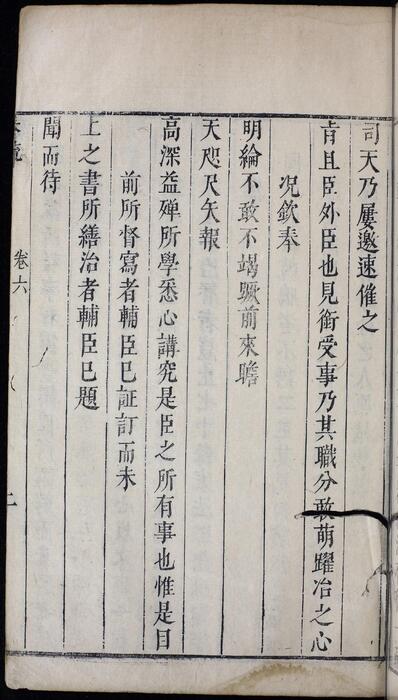 司天乃屢邀速催之
肯且臣外臣也見銜受事乃其職分敢萌躍冶之心
況欽奉
明綸不敢不竭蹶前來瞻
天咫尺矢報
高深益殫所學悉心講究是臣之所有事也惟是目
前所督寫者輔臣已証訂而未
上之書所繕治者輔臣已題
聞而待
卷六
二